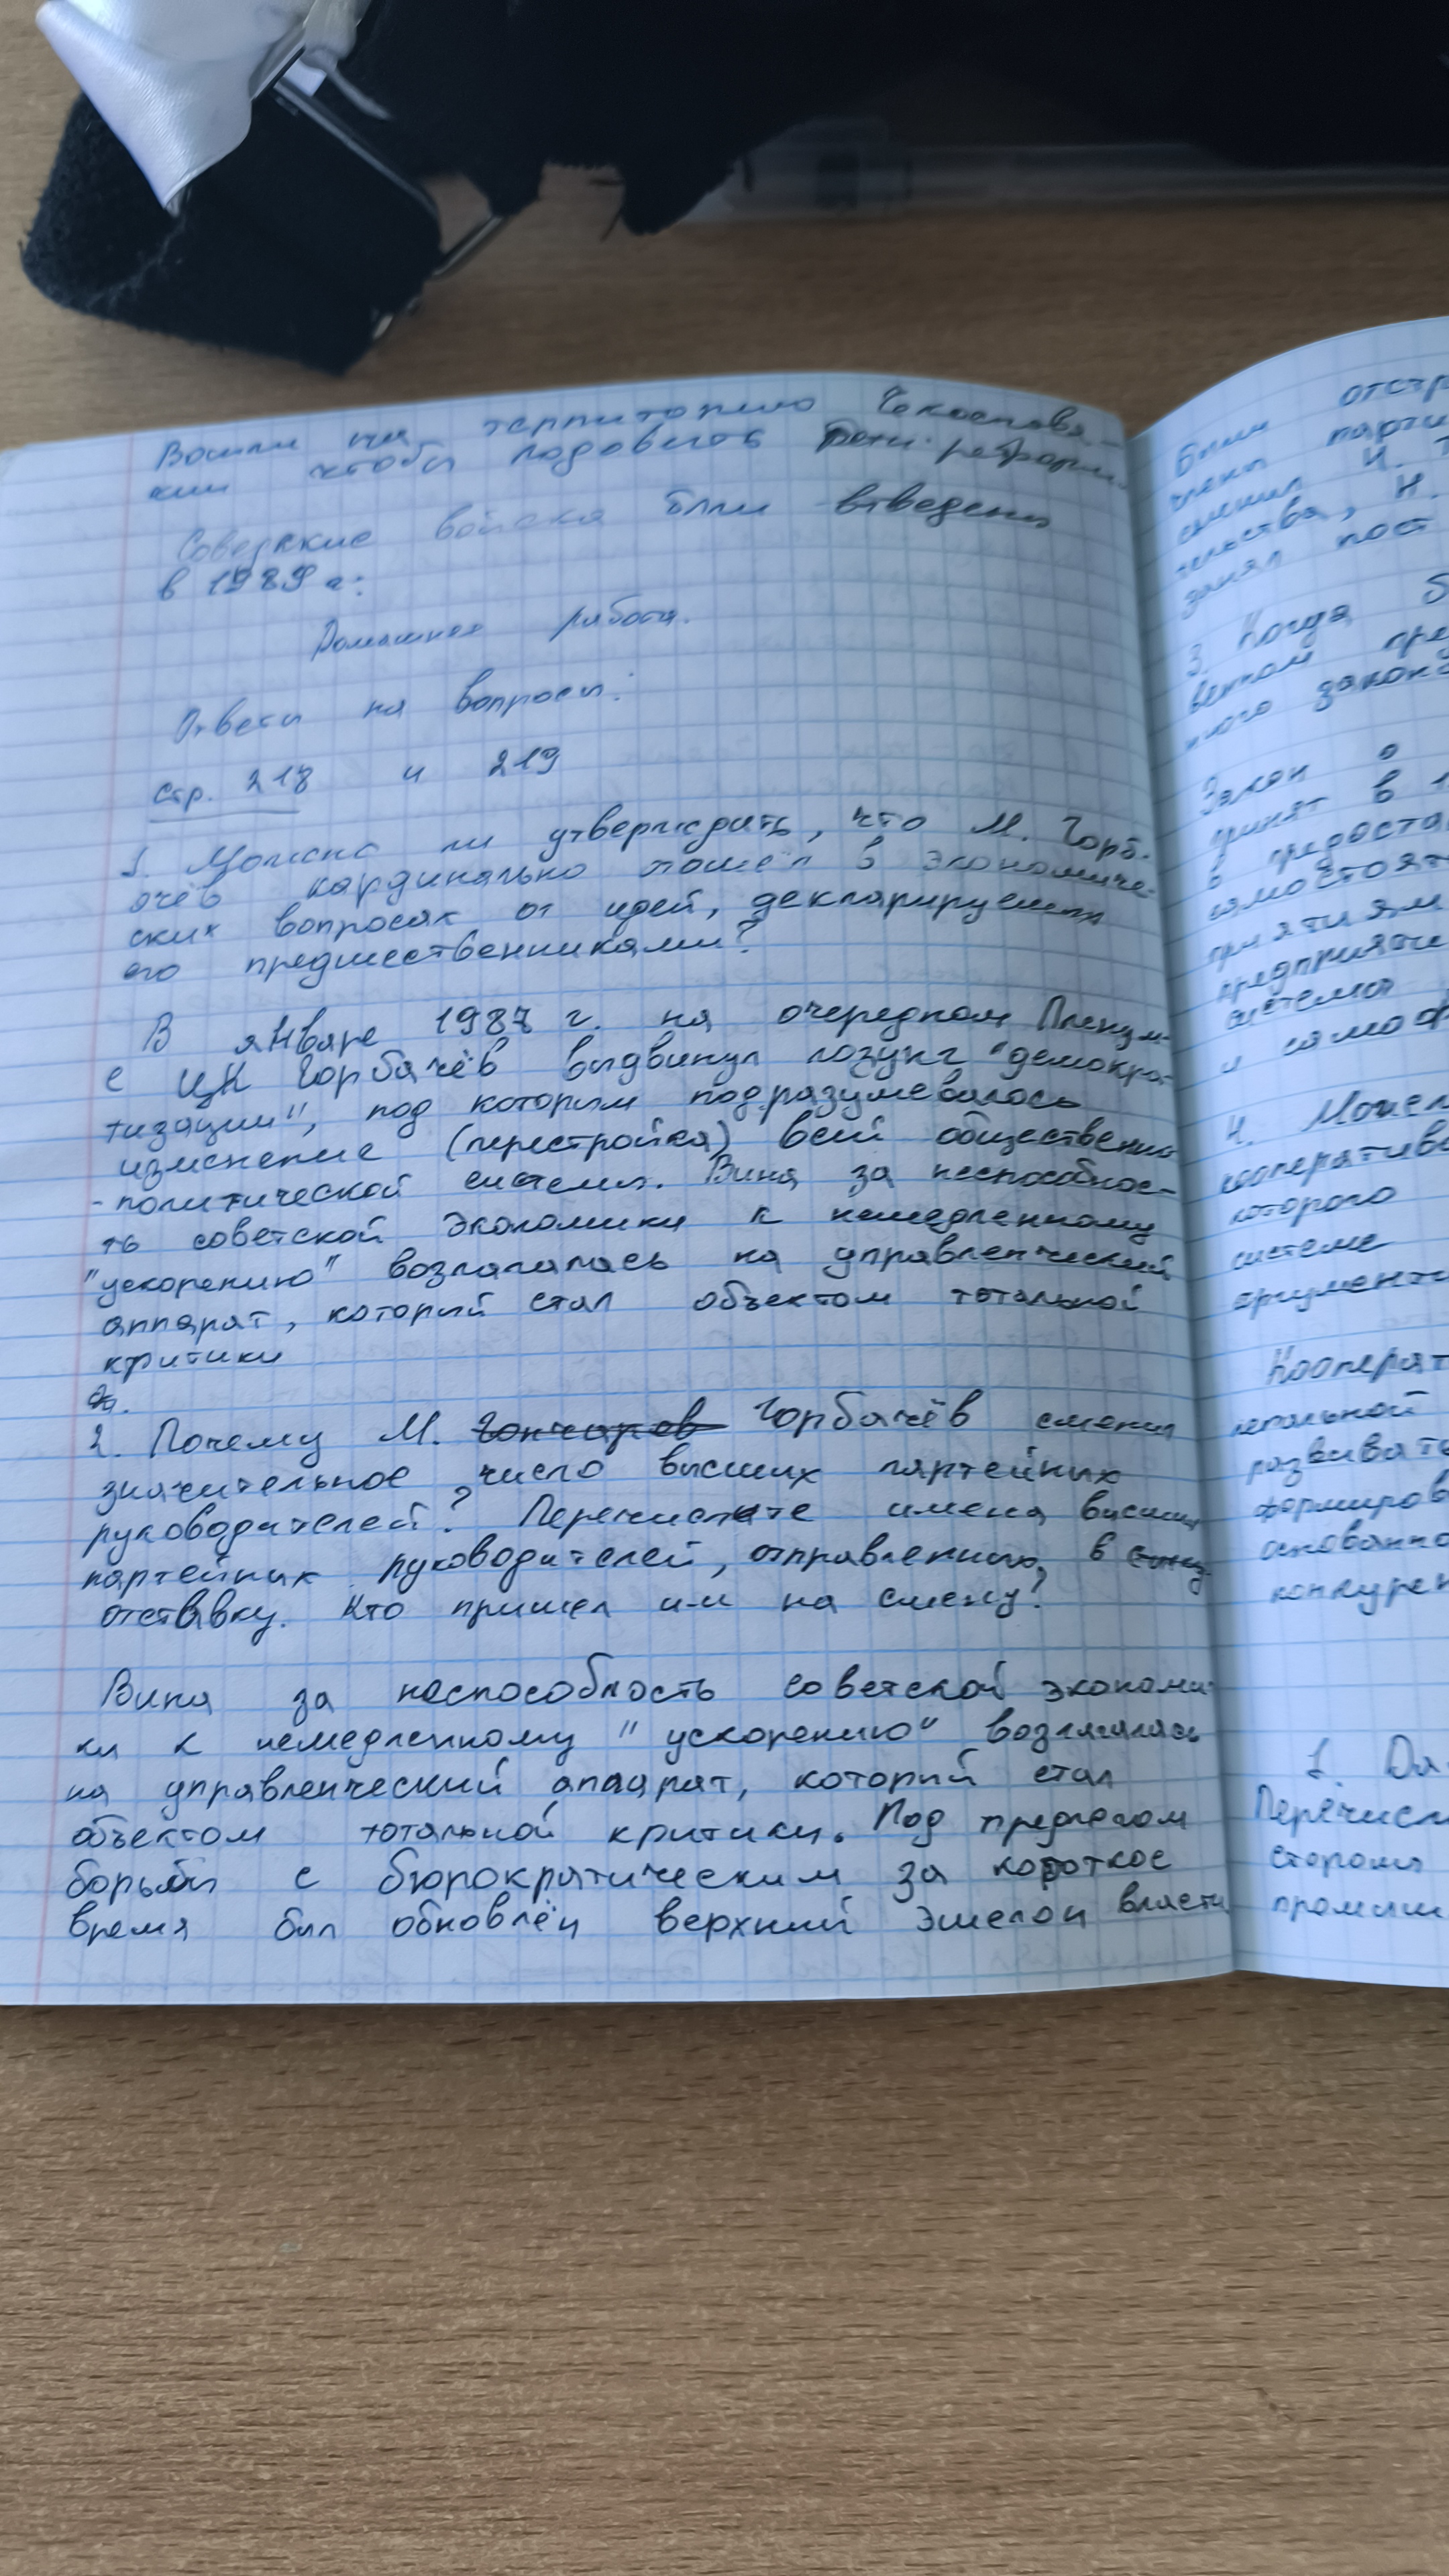 Вошли на территорию Чехослова-
кии чтобы подавить реформ
Советские войска были выведены
в 1989 г.
Домашняя работа.
Ответы на вопросы:
стр. 218 и 219
1. Можно ли утверждать, что М. Горб-
очёв кардинально пошёл в экономиче-
ских вопросах от идей, декларируемых
его предшественниками?
В январе 1987 г. на очередном Пленум-
е ЦК Горбачёв выдвинул лозунг "демокра-
тизации", под которым подразумевалось
изменение (перестройка) всей общественно
-политической системы. Вина за неспособнос-
ть советской экономики к немедленному
"ускорению" возлагалась на управленческий
аппарат, который стал объектом тотальной
критики
2. Почему М. Гончаров Горбачёв сменил
значительное число высших партейных
руководителей? Перечислите имена высших
партейных руководителей, отправленных в
отставку. Кто пришел им на смену?
Вина за неспособность советской экономи-
ки к немедленному "ускорению" возлагалась
на управленческий апарат, который стал
объектом тотальной критики. Под предлогом
борьбы с бюрократическим за короткое
время был обновлён верхний эшелон власти
были отстр
члены парти
сменил Н.
тельства, Н.
занял пост
3. Когда
венном пре
ного закон
Закон о
принят в 1
в предоста
самостоят
приятиям
предприяти
системы
и самоф
4. Может
кооператив
которого
системе
аргумент
Кооперат
легальной
развиват
формиров
основанно
конкурен
1. Да
Перечисл
стороны
промыш